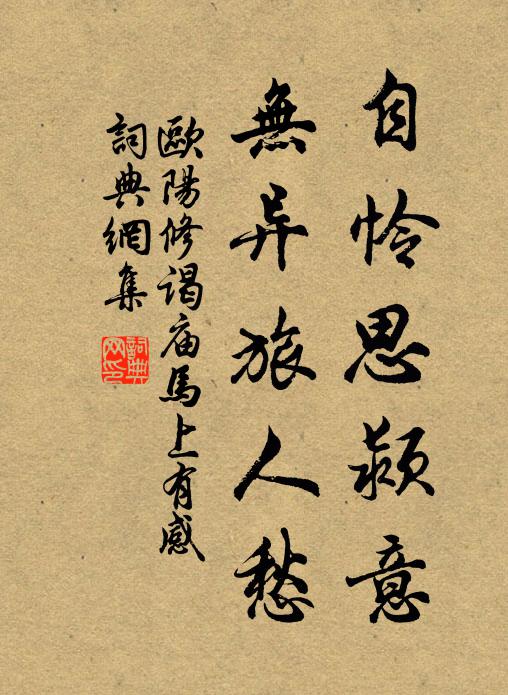 自怜思颍意
無异旅人愁
歐陽修谒庙馬上有感
詞典網集
詞典网印